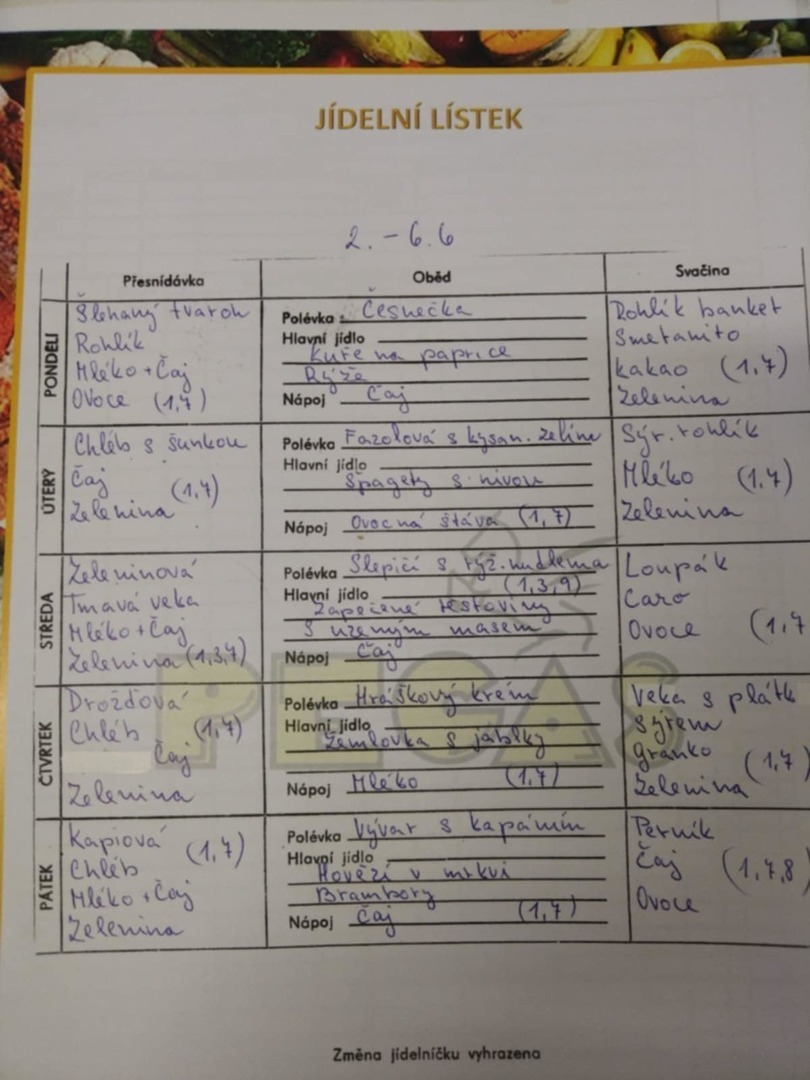 JÍDELNÍ LÍSTEK
2. - 6.6
Přesnídávka
Oběd
Svačina
PONDĚLÍ
Šlehaný tvaroh
Rohlík
Mléko + Čaj
Ovoce (1,7)
Polévka : Česnečka
Hlavní jídlo
Kuře na paprice
Rýže
Nápoj Čaj
Rohlík banket
Smetanito
kakao (1,7)
Zelenina
ÚTERÝ
Chléb s šunkou
Čaj (1,7)
Zelenina
Polévka Fazolová s kysan. zelím
Hlavní jídlo
Špagety s nivou
Nápoj Ovocná šťáva (1,7)
Sýr. rohlík
Mléko (1,7)
Zelenina
STŘEDA
Zeleninová
Tmavá veka
Mléko + Čaj
Zelenina (1,3,7)
Polévka Slepičí s rýž. nudlema
Hlavní jídlo (1,3,9)
Zapečené těstoviny
S uzeným masem
Nápoj Čaj
Loupák
Caro
Ovoce (1,7
ČTVRTEK
Drožďová
Chléb (1,7)
Čaj
Zelenina
Polévka Hráškový krém
Hlavní jídlo
Žemlovka s jablky
Nápoj Mléko (1,7)
Veka s plátk
sýrem
granko (1,7)
Zelenina
PÁTEK
Kapiová (1,7)
Chléb
Mléko + Čaj
Zelenina
Polévka Vývar s kapáním
Hlavní jídlo
Hovězí v mrkvi
Brambory
Nápoj Čaj (1,7)
Perník
Čaj (1,7,8)
Ovoce
PEGAS
Změna jídelníčku vyhrazena